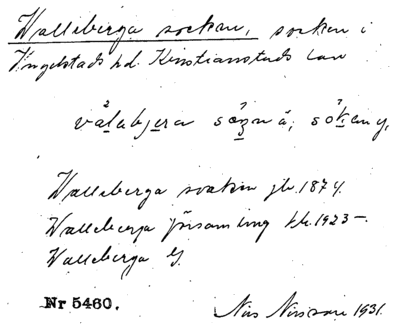 Walleberga socken, socken i
Ingelstads hd. Kristianstads län
Walleberga socken jb. 1874.
Walleberga församling kb. 1923–
Walleberga G.
Nr 5460.
Nils Nilsson 1931.